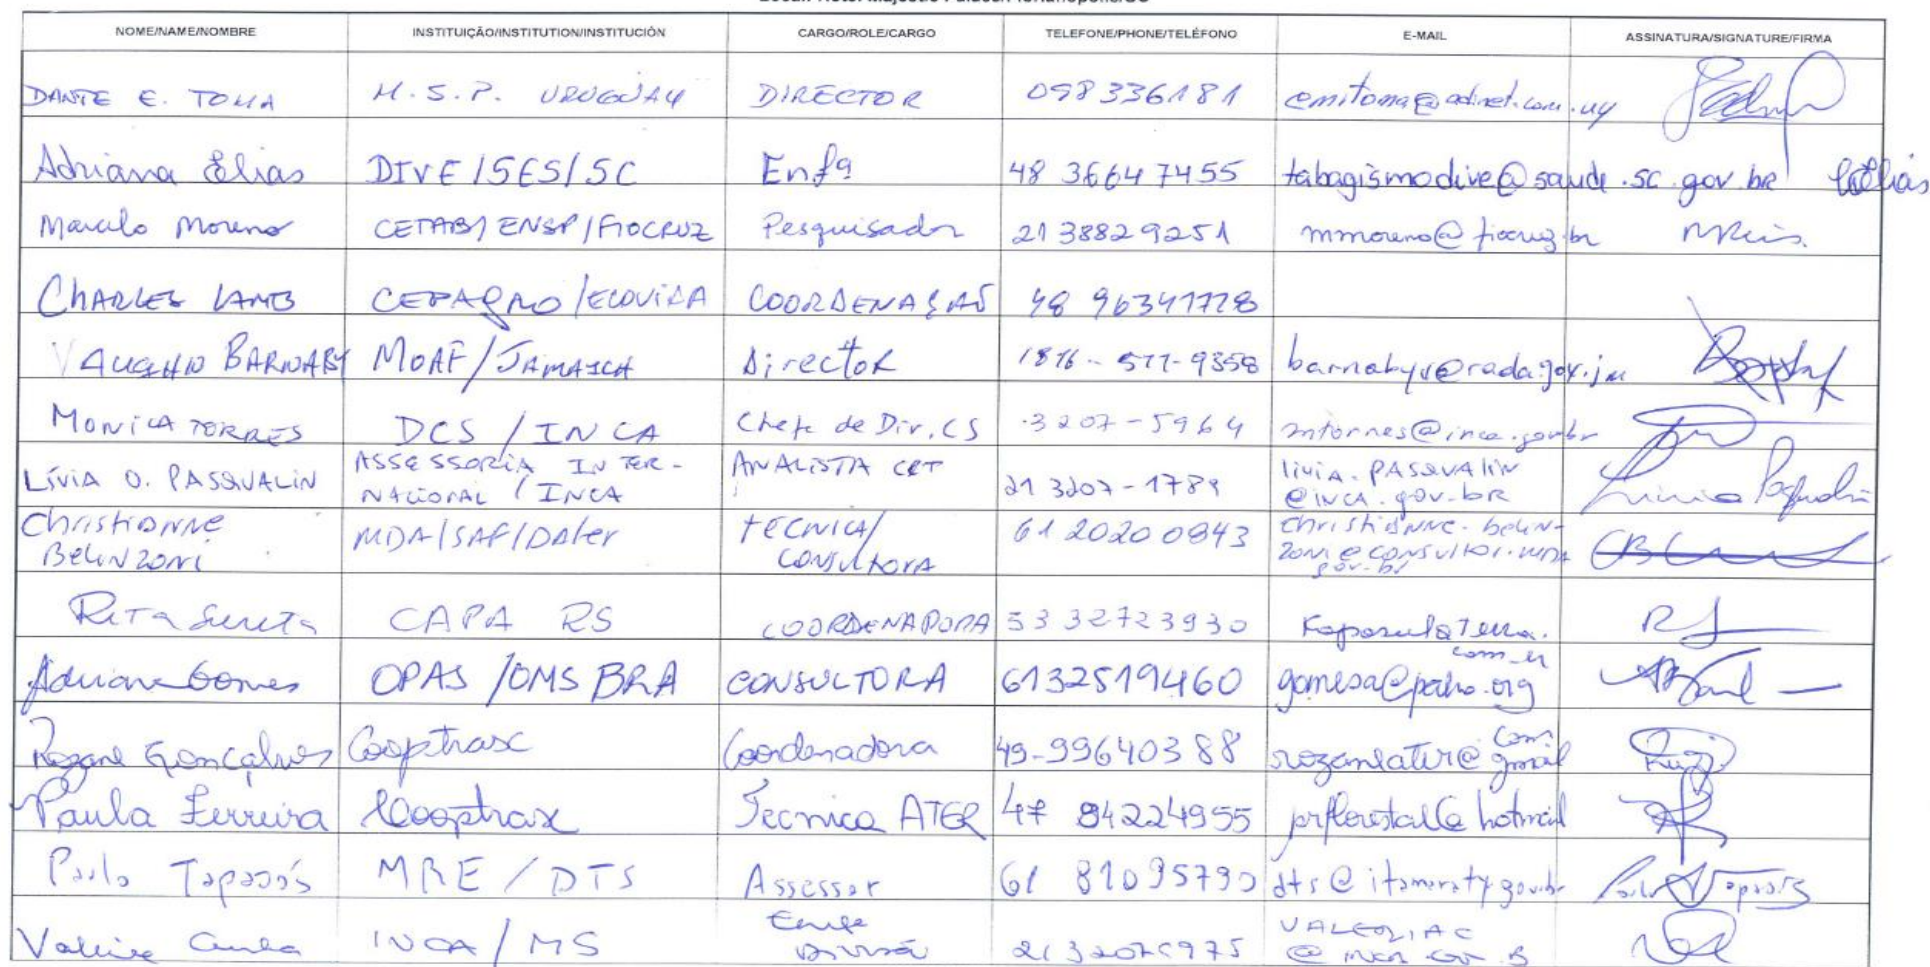 NOME/NAME/NOMBRE INSTITUIÇÃO/INSTITUTION/INSTITUCIÓN CARGO/ROLE/CARGO TELEFONE/PHONE/TELÉFONO E-MAIL ASSINATURA/SIGNATURE/FIRMA
DANTE E. TOMA M.S.P. URUGUAY DIRECTOR 098336181 emitoma@adinet.com.uy
Adriana Elias DIVE/SES/SC Enfª 48 36647455 tabagismodive@saude.sc.gov.br
Marcelo Moreno CETAB/ENSP/FIOCRUZ Pesquisador 21 38829251 mmoreno@fiocruz.br
CHARLES LAMB CEPAGRO/ECOVIDA COORDENAÇÃO 48 96341728
VAUGHN BARNABY MOAF/JAMAICA Director barnabyv@rada.gov.jm
MONICA TORRES DCS/INCA Chefe de Div. CS 3207-5964 mtorres@inca.gov.br
LÍVIA O. PASQUALIN ASSESSORIA INTER- ANALISTA 21 3207-1789 livia.PASQUALIN
NACIONAL / INCA @INCA.gov.bR Livia Pasqualin
Christianne MDA/SAF/Dater TECNICA/ 61 20200843 christianne.belin-
Belinzoni CONSULTORA zoni@consultor.mda
gov.br
Rita CAPA RS COORDENADORA 53 32723930
Adriana Gomes OPAS/OMS BRA CONSULTORA 6132519460 gomesa@paho.org
Rozane Gonçalves Cooptrasc Coordenadora 49-99640388 rozaneater@gmail
com
Paula Ferreira Cooptrasc Tecnica ATER 47 84224955 prflorestal@hotmail
Paulo Tapajós MRE / DTS Assessor 61 81095790 dts@itamaraty.gov.br
INCA / MS VALERIAC